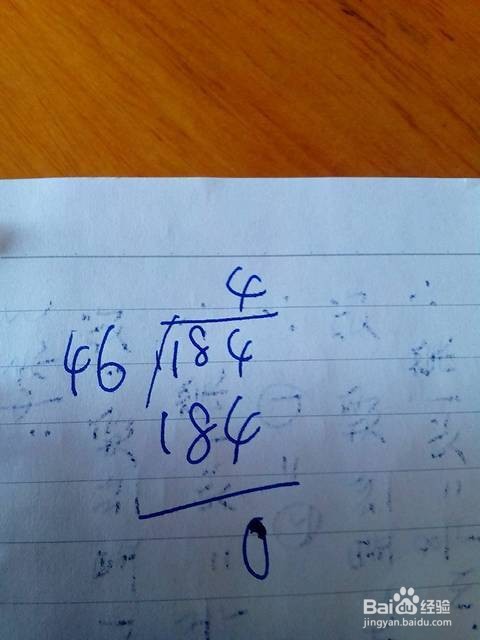 4
46 184
184
0
Baidu 经验
jingyan.baidu.com